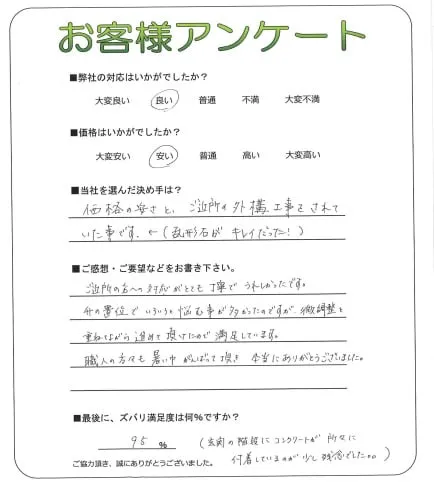 お客様アンケート
■弊社の対応はいかがでしたか？
大変良い 良い 普通 不満 大変不満
■価格はいかがでしたか？
大変安い 安い 普通 高い 大変高い
■当社を選んだ決め手は？
価格の安さと、ご近所の外構工事をされて
いた事です。←（乱形石がキレイだった！）
■ご感想・ご要望などをお書き下さい。
ご近所の方への対応がとても丁寧でうれしかったです。
舟の置位でいろいろと悩む事が多かったのですが、微調整を
重ねながら進めて頂けたので満足しています。
職人の方々も暑い中がんばって頂き 本当にありがとうございました。
■最後に、ズバリ満足度は何％ですか？
95 ％ （玄関の階段にコンクリートが所々に
付着しているのが少し残念でした。。）
ご協力頂き、誠にありがとうございました。